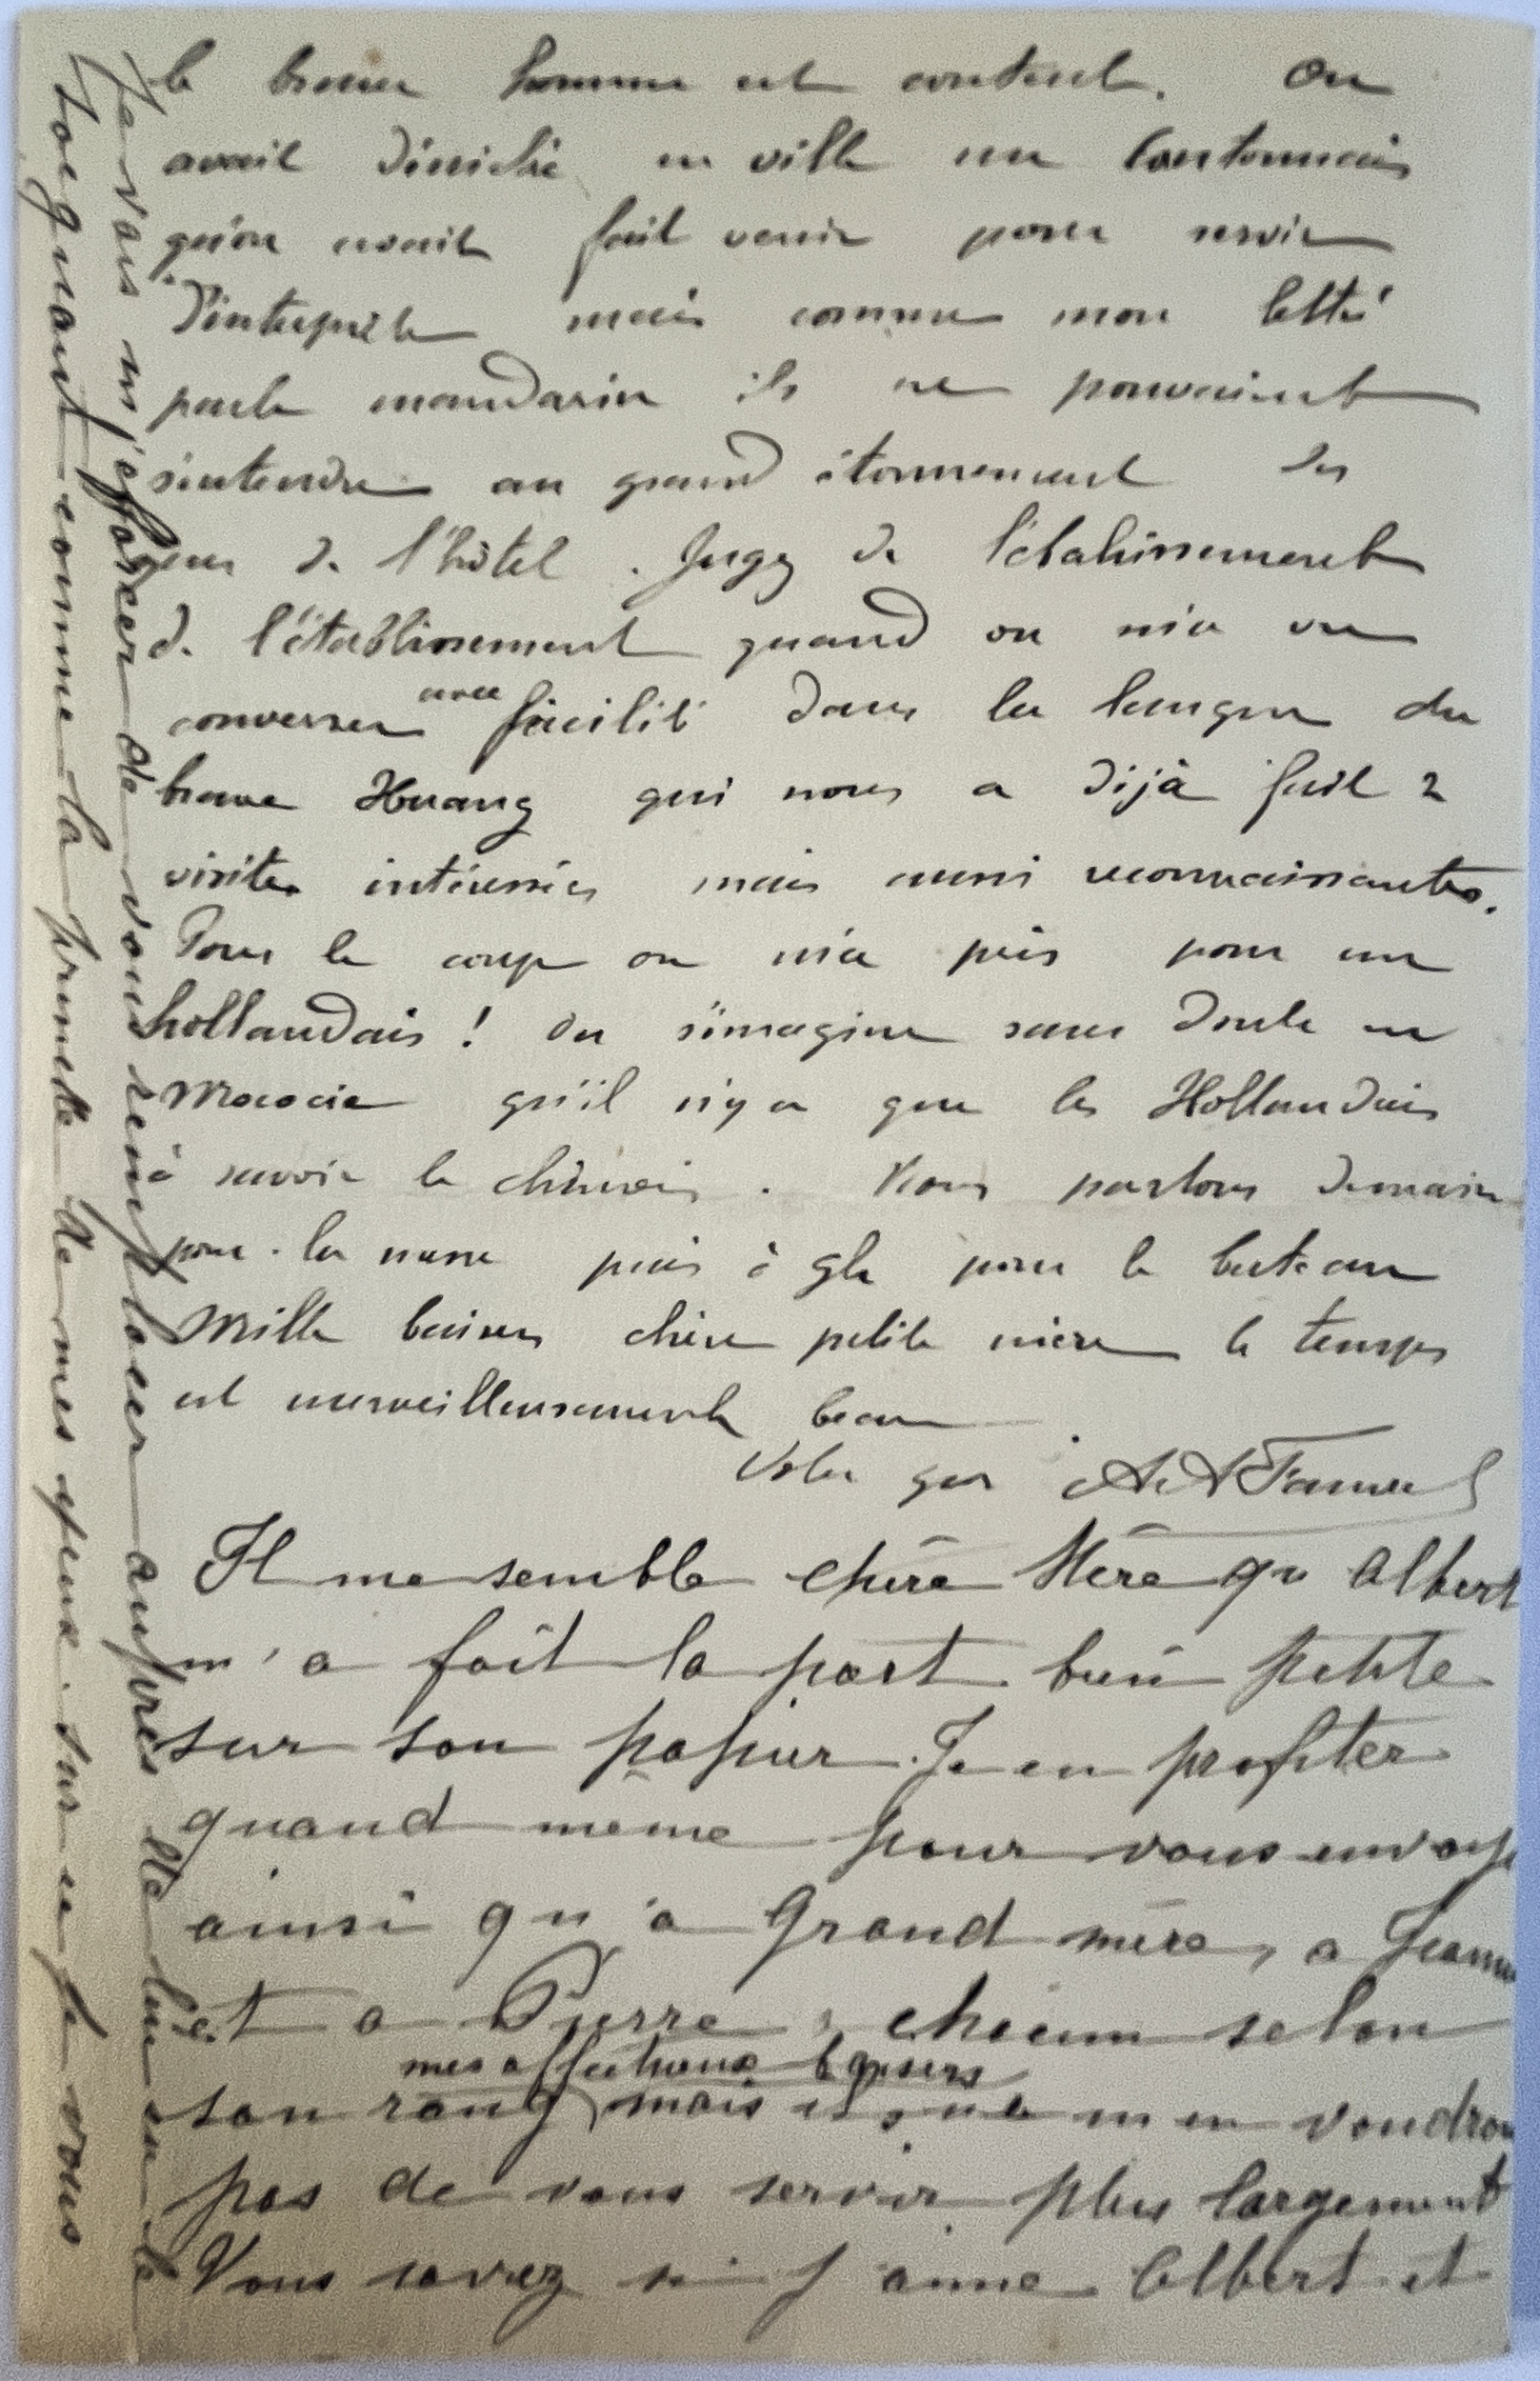 le brave homme est content. On
avait déniché en ville un Cantonnais
qu'on avait fait venir pour servir
d'interprète mais comme mon lettré
parle mandarin ils ne pouvaient
s'entendre au grand étonnement des
gens de l'hôtel. Jugez de l'ébahissement
de l'établissement quand on m'a vu
converser avec facilité dans la langue du
brave Huang qui nous a déjà fait 2
visites intéressées mais aussi reconnaissantes.
Pour le coup on m'a pris pour un
hollandais ! On s'imagine sans doute en
qu'il n'y a que les Hollandais
à savoir le chinois. Nous partons demain
pour la messe puis à 9h pour le bateau
Mille baisers chère petite mère le temps
est merveilleusement beau
Votre gas A
Il me semble chère Mère qu Albert
m'a fait la part bien petite
sur son papier. Je en profiter
quand meme pour vous envoyer
ainsi qu'a Grand mère, a Jeanne
et a Pierre, chacun selon
mes affectueux baisers
son rang, mais ne m en voudrez
pas de vous servir plus largement
Vous savez si j aime Albert et
Je vais m'efforcer de vous remplacer auprès de lui en le
soignant comme la prunelle de mes yeux. Sur ce je vous